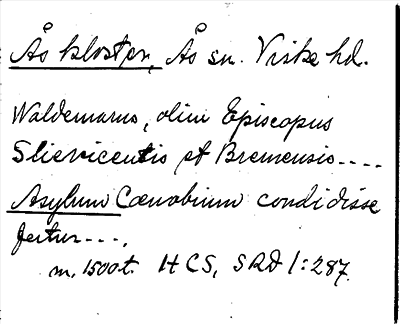 Ås kloster, Ås sn. Viske hd.
Waldemarus, olim Episcopus
Slievicentis et Bremensis ....
Asylum Cœnobium condidisse
fertur ....
m. 1500 t. HCS, SRD 1:287.